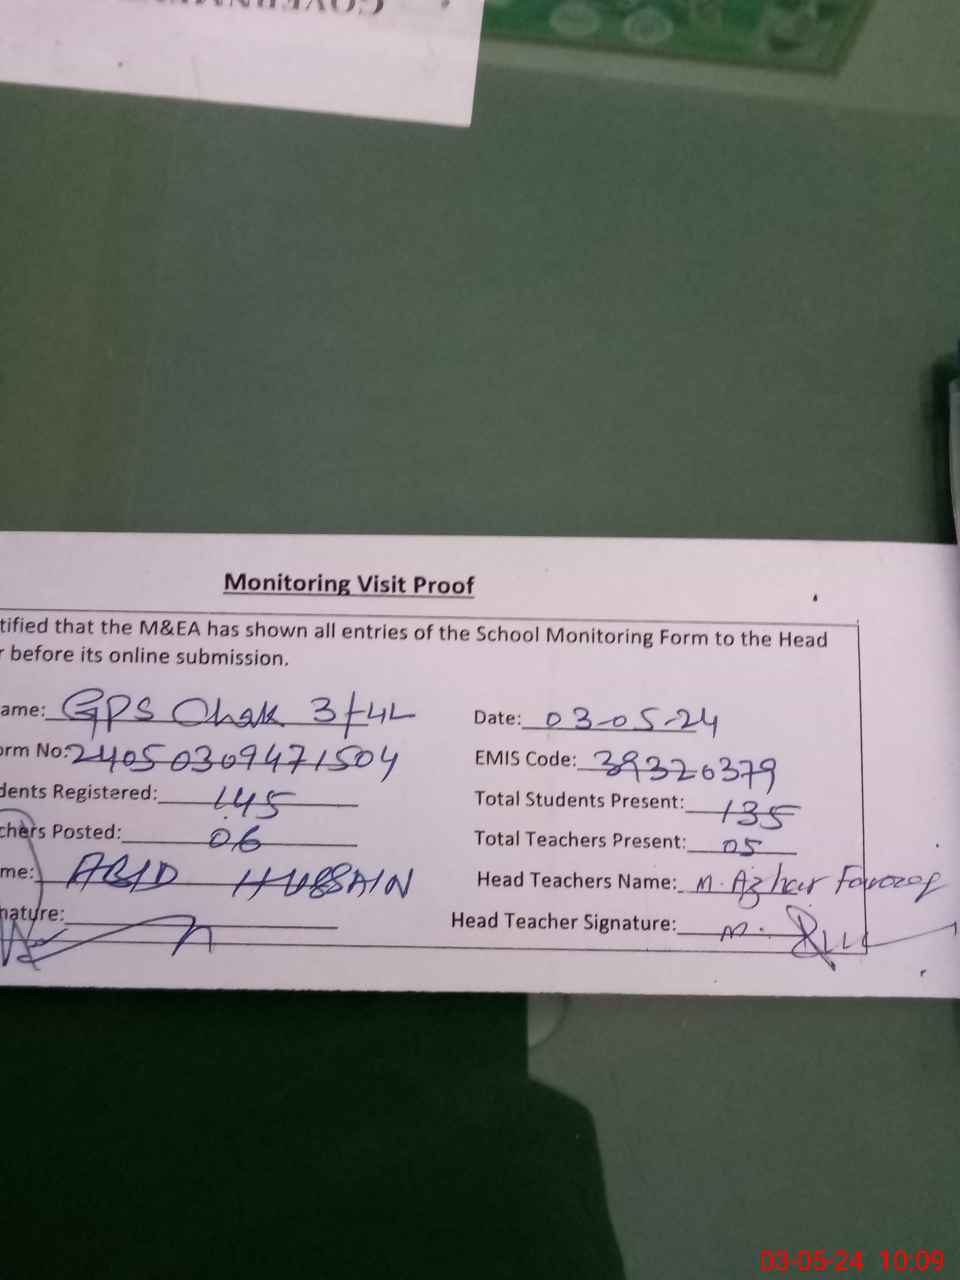 Monitoring Visit Proof
tified that the M&EA has shown all entries of the School Monitoring Form to the Head
r before its online submission.
ame: GPS Chak 3/4L Date: 03-05-24
orm No: 24050309471504 EMIS Code: 39320379
dents Registered: 145 Total Students Present: 135
chers Posted: 06 Total Teachers Present: 05
me: ABID HUSSAIN Head Teachers Name: M. Azhar Farooq
nature: Head Teacher Signature: M.
03-05-24 10:09